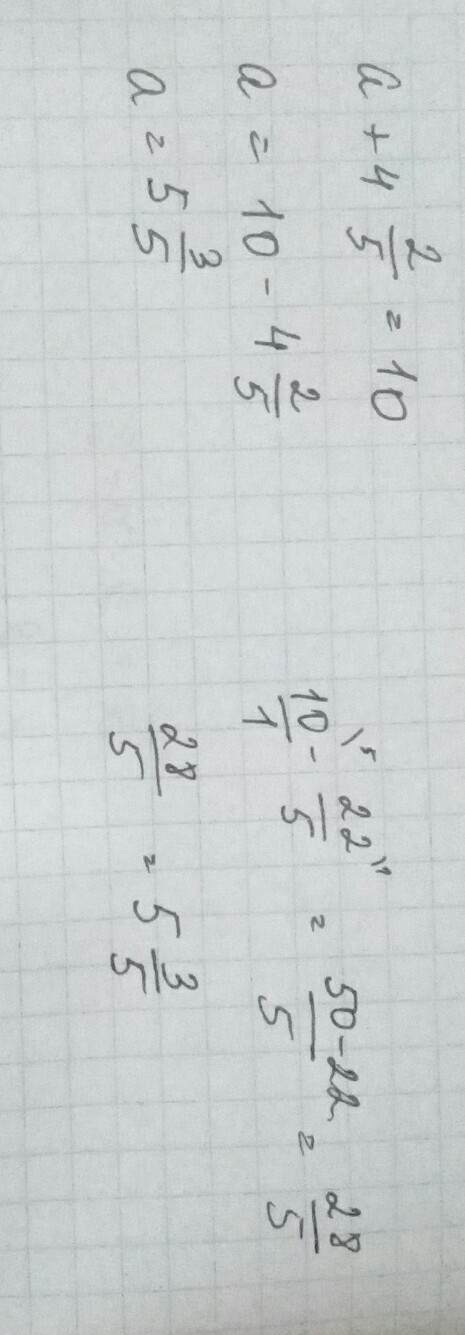 a + 4 2/5 = 10
a = 10 - 4 2/5
a = 5 3/5
10/1 \5 - 22/5 \1 = 50-22/5 = 28/5
28/5 = 5 3/5